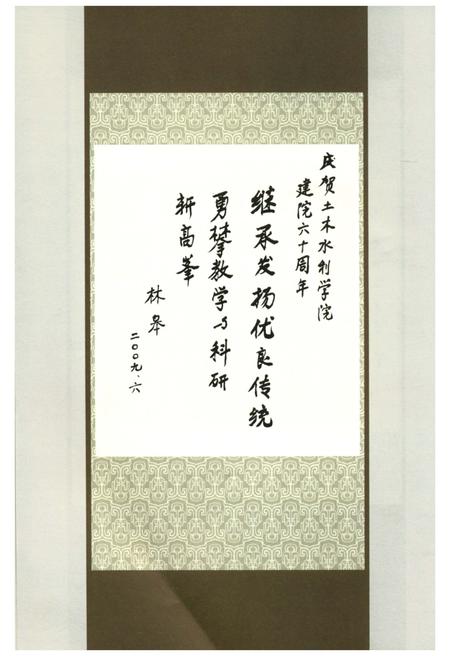 庆贺土木水利学院
建院六十周年
继承发扬优良传统
勇攀教学与科研
新高峯
林皋
二〇〇九.六